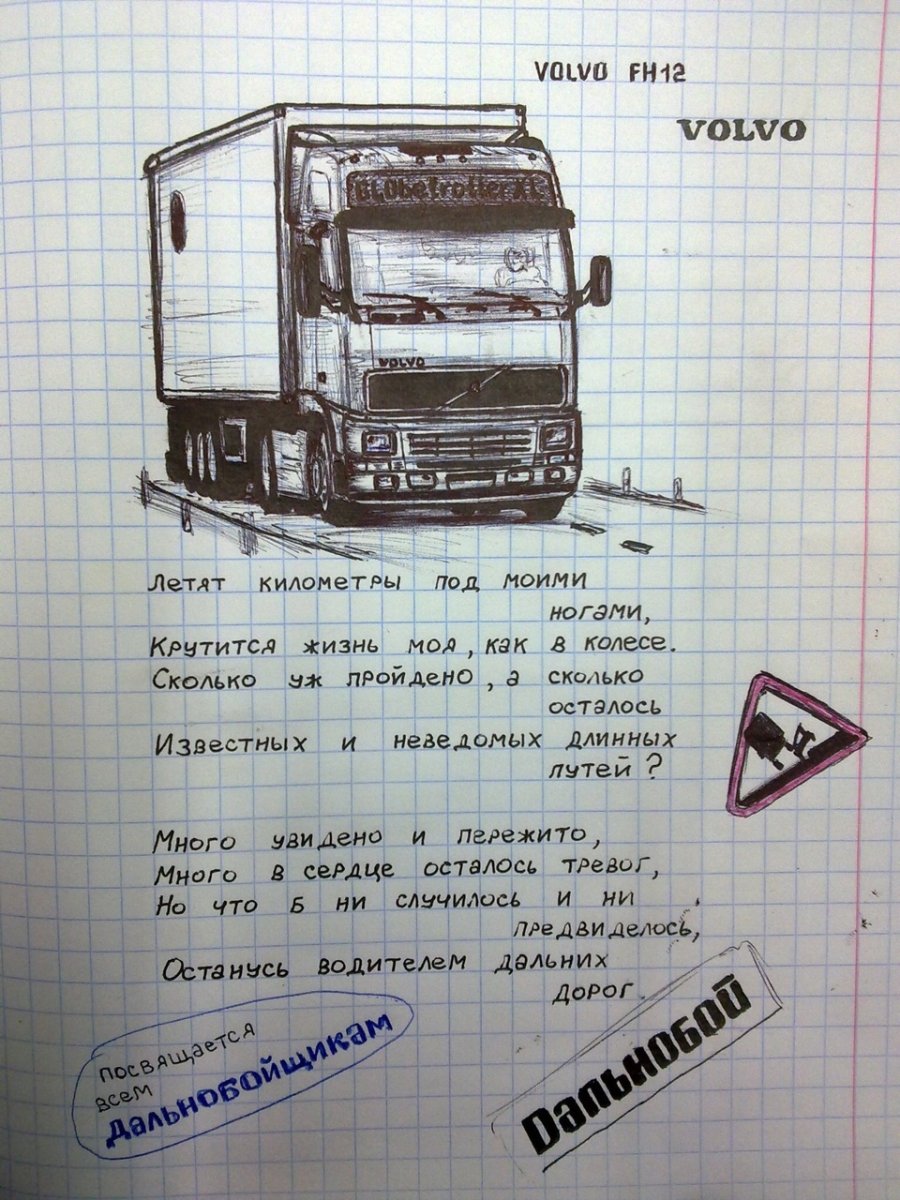 VOLVO FH12
VOLVO
GLObetrotter XL
VOLVO
Летят километры под моими
ногами,
Крутится жизнь моя, как в колесе.
Сколько уж пройдено, а сколько
осталось
Известных и неведомых длинных
путей?
Много увидено и пережито,
Много в сердце осталось тревог,
Но что б ни случилось и ни
предвиделось,
Останусь водителем дальних
дорог.
посвящается
всем
дальнобойщикам
Дальнобой